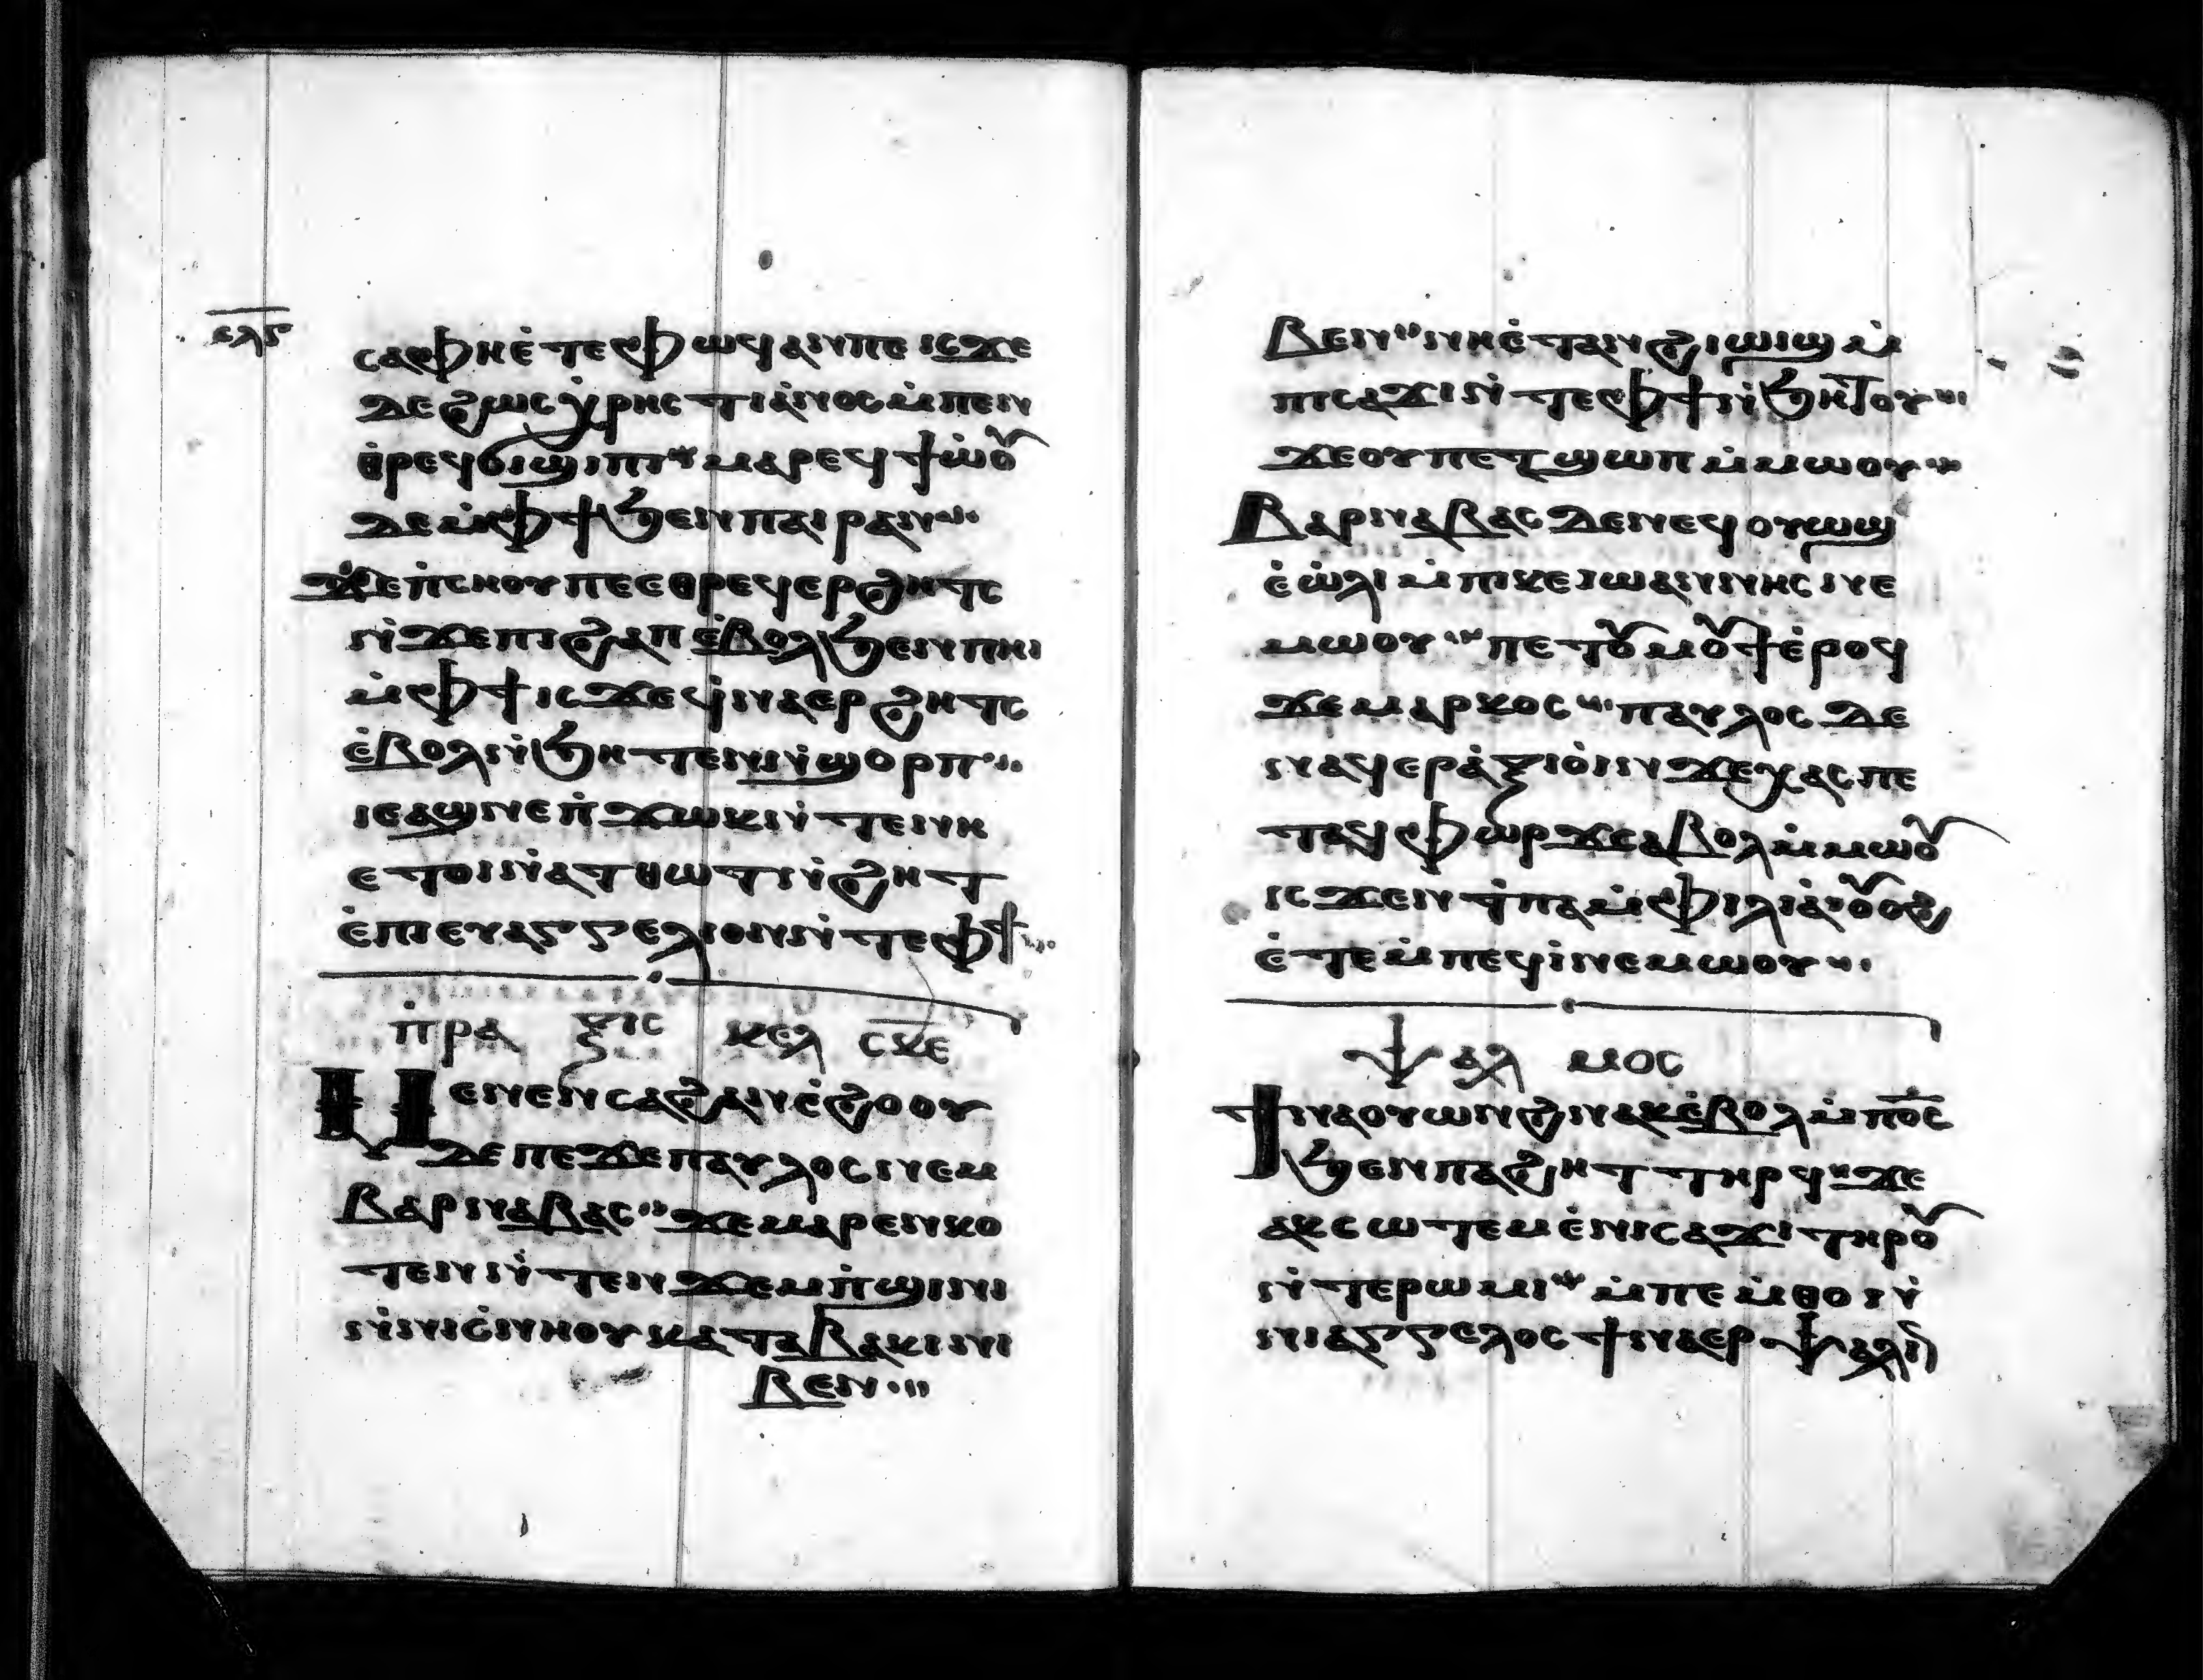 ⲉⲗⲋ
ⲥⲁⲫⲏⲉ̇ⲧⲉⲫⲱϥⲁⲛⲡⲉ ⲓⲥϫⲉ
ⲇⲉϩⲱⲥⲭ̇ⲣⲏⲥⲧⲓⲁ̇ⲛⲟⲥⲙ̇ⲡⲉⲛ
ⲑ̇ⲣⲉϥϭⲓϣⲓⲡⲓ ⲙⲁⲣⲉϥϯⲱ̇ⲟⲩ
ⲇⲉⲙ̇ⲫϯϧⲉⲛⲡⲁⲓⲣⲁⲛ
ϫⲉⲡ̇ⲥⲏⲟⲩⲡⲉⲉⲑⲣⲉϥⲉⲣϩⲏⲧⲥ
ⲛ̇ϫⲉⲡⲓϩⲁⲡⲉ̇ⲃⲟⲗϧⲉⲛⲡⲏⲓ
ⲙ̇ⲫϯⲓⲥϫⲉϥⲛⲁⲉⲣϩⲏⲧⲥ
ⲉ̇ⲃⲟⲗⲛ̇ϧⲏⲧⲉⲛⲛ̇ϣⲟⲣⲡ
ⲓⲉⲁϣⲛⲉⲡ̇ϫⲱⲕⲛ̇ⲧⲉⲛⲏ
ⲉⲧⲟⲓⲛ̇ⲁⲧⲑⲱⲧⲛ̇ϩⲏⲧ
ⲉ̇ⲡⲓⲉⲩⲁⲅⲅⲉⲗⲓⲟⲛⲛ̇ⲧⲉⲫϯ
ⲡ̇ⲣⲁ ⲝⲓⲥ ⲕⲉⲗ ⲥⲕⲉ
ⲙⲉⲛⲉⲛⲥⲁϩⲁⲛⲉ̇ϩⲟⲟⲩ
ⲇⲉⲡⲉϫⲉⲡⲁⲩⲗⲟⲥⲛⲉⲙ
ⲃⲁⲣⲛⲁⲃⲁⲥ ϫⲉⲙⲁⲣⲉⲛⲕⲟ
ⲧⲉⲛⲛ̇ⲧⲉⲛϫⲉⲙⲡ̇ϣⲓⲛⲓ
ⲛ̇ⲛⲓⲥ̇ⲛⲏⲟⲩⲕⲁⲧⲁⲃⲁⲕⲓⲛⲓ
ⲃⲉⲛ
ⲃⲉⲛ ⲛⲏⲉ̇ⲧⲁⲛϩⲓⲱⲓϣⲙ̇
ⲡⲓⲥⲁϫⲓⲛ̇ⲧⲉⲫϯⲛ̇ϧⲏⲧⲟⲩ
ϫⲉⲟⲩⲡⲉⲧϣⲱⲡⲙ̇ⲙⲱⲟⲩ
ⲃⲁⲣⲛⲁⲃⲁⲥⲇⲉⲛⲉϥⲟⲩⲱϣ
ⲉ̇ⲱ̇ⲗⲓⲙ̇ⲡⲓⲕⲉⲓⲱⲁⲛⲛⲏⲥⲛⲉ
ⲙⲱⲟⲩ ⲡⲉⲧⲟⲩⲙⲟⲩϯⲉ̇ⲣⲟϥ
ϫⲉⲙⲁⲣⲕⲟⲥ ⲡⲁⲩⲗⲟⲥ ⲇⲉ
ⲛⲁϥⲉⲣⲁ̇ⲝⲓⲟ̇ⲓⲛϫⲉⲭⲁⲥⲡⲉ
ⲧⲁϥⲫⲱⲣϫⲉⲁⲃⲟⲗⲙ̇ⲙⲱⲟⲩ
ⲓⲥϫⲉⲛϯⲡⲁⲙ̇ⲫⲓⲗⲓⲁ̇ⲟⲩⲟϩ
ⲉ̇ⲧⲉⲙ̇ⲡⲉϥⲓ̇ⲛⲉⲙⲱⲟⲩ
ⲯⲁⲗ ⲙⲟⲥ
ϯⲛⲁⲟⲩⲱⲛϩⲛⲁⲕⲉ̇ⲃⲟⲗⲙ̇ⲡⲟ̅ⲥ̅
ϧⲉⲛⲡⲁϩⲏⲧⲧⲏⲣϥ ϫⲉ
ⲁⲕⲥⲱⲧⲉⲙⲉ̇ⲛⲓⲥⲁϫⲓⲧⲏⲣⲟⲩ
ⲛ̇ⲧⲉⲣⲱⲙⲓ ⲙ̇ⲡⲉⲙ̇ⲑⲟⲛ̇
ⲛⲓⲁⲅⲅⲉⲗⲟⲥϯⲛⲁⲉⲣⲯⲁⲗⲓⲛ